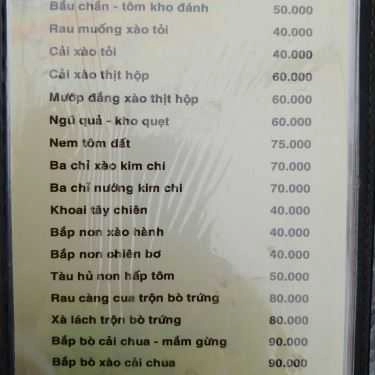 Bầu chấn - tôm kho đánh 50.000
Rau muống xào tỏi 40.000
Cải xào tỏi 40.000
Cải xào thịt hộp 60.000
Mướp đắng xào thịt hộp 60.000
Ngũ quả - kho quẹt 60.000
Nem tôm đất 75.000
Ba chỉ xào kim chi 70.000
Ba chỉ nướng kim chi 70.000
Khoai tây chiên 40.000
Bắp non xào hành 40.000
Bắp non chiên bơ 40.000
Tàu hủ non hấp tôm 50.000
Rau càng cua trộn bò trứng 80.000
Xà lách trộn bò trứng 80.000
Bắp bò cải chua - mắm gừng 90.000
Bắp bò xào cải chua 90.000